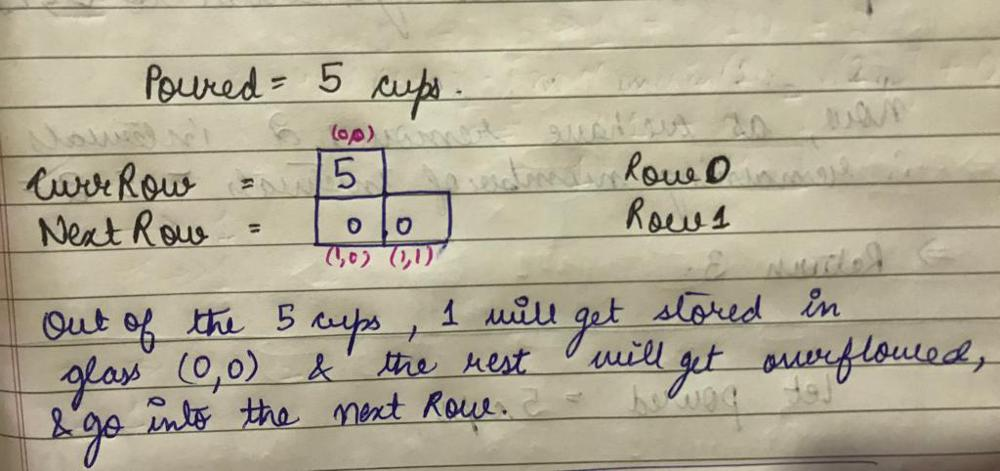 Poured = 5 cups.
(0,0)
CurrRow = 5 Row 0
Next Row = 0 0 Row 1
(1,0) (1,1)
Out of the 5 cups, 1 will get stored in
glass (0,0) & the rest will get overflowed,
& go into the next Row.